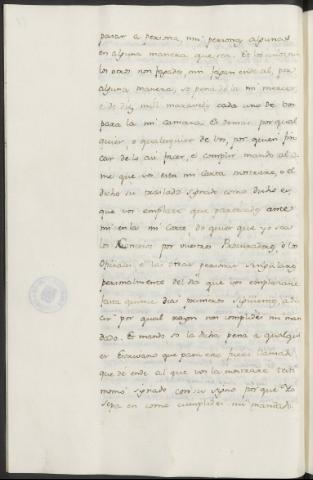 pasar a persona, nin personas algunas
en alguna manera que sea. E los unos, nin
los otros non fagades, nin fagan ende al, por
alguna manera, so pena de la mi merced,
e de diez mill maravedis cada uno de vos
para la mi camara. E demas por qual
quier, o qualesquier de vos, por quien fin
car de lo asi facer, e complir mando al o
me que vos esta mi carta mostrare, o el
dicho su traslado signado como dicho es,
que vos emplace que parezcades ante
mi en la mi Corte do quier que yo sea
los Concejos por vuestros Procuradores, e los
Oficiales, e las otras personas singulares
personalmente del dia que vos emplazare
fasta quince dias primeros siguientes, a de
cir por qual razon non complides mi man
dado. E mando so la dicha pena a qualqui
er Escrivano que para esto fuere llamado
que de ende al que vos la mostrare testi
monio signado con su signo por que Yo
sepa en como cumplides mi mandado.